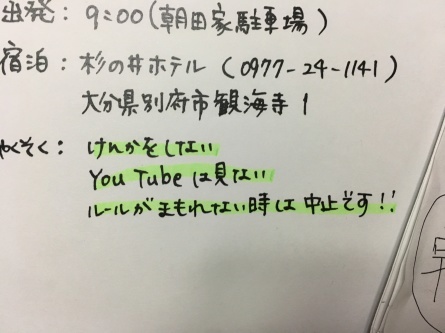 出発：9:00（朝田家駐車場）
宿泊：杉の井ホテル（0977-24-1141）
大分県別府市観海寺1
やくそく：けんかをしない
YouTubeは見ない
ルールがまもれない時は中止です!!